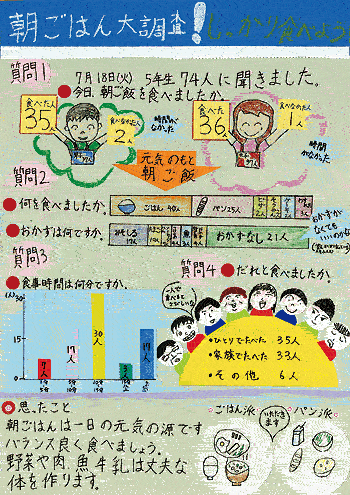 朝ごはん大調査!しっかり食べよう
質問1
7月18日(火) 5年生 74人に聞きました。
●今日、朝ご飯を食べましたか。
食べた人 35人
食べなかった人 2人
時間がなかった
食べた人 36人
食べなかった人 1人
時間がなかった
元気のもと
朝ご飯
質問2
●何を食べましたか。
ごはん 40人
パン 25人
●おかずは何ですか。
みそしる
おかずなし 21人
おかずがなくてもいいのかな
質問3
●食事時間は何分ですか。
(人)
30
20
10
0
7人
17人
30人
3人
17人
質問4 ●だれと食べましたか。
・ひとりでたべた 35人
・家族でたべた 33人
・その他 6人
◎思ったこと
朝ごはんは一日の元気の源です
バランス良く食べましょう。
野菜や肉、魚、牛乳は丈夫な
体を作ります。
ごはん派
いただきます
パン派